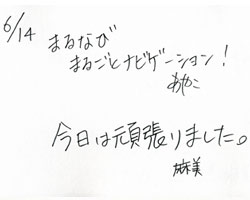 6/14
まるなび
まるごとナビゲーション！
あやこ
今日は頑張りました。
麻美